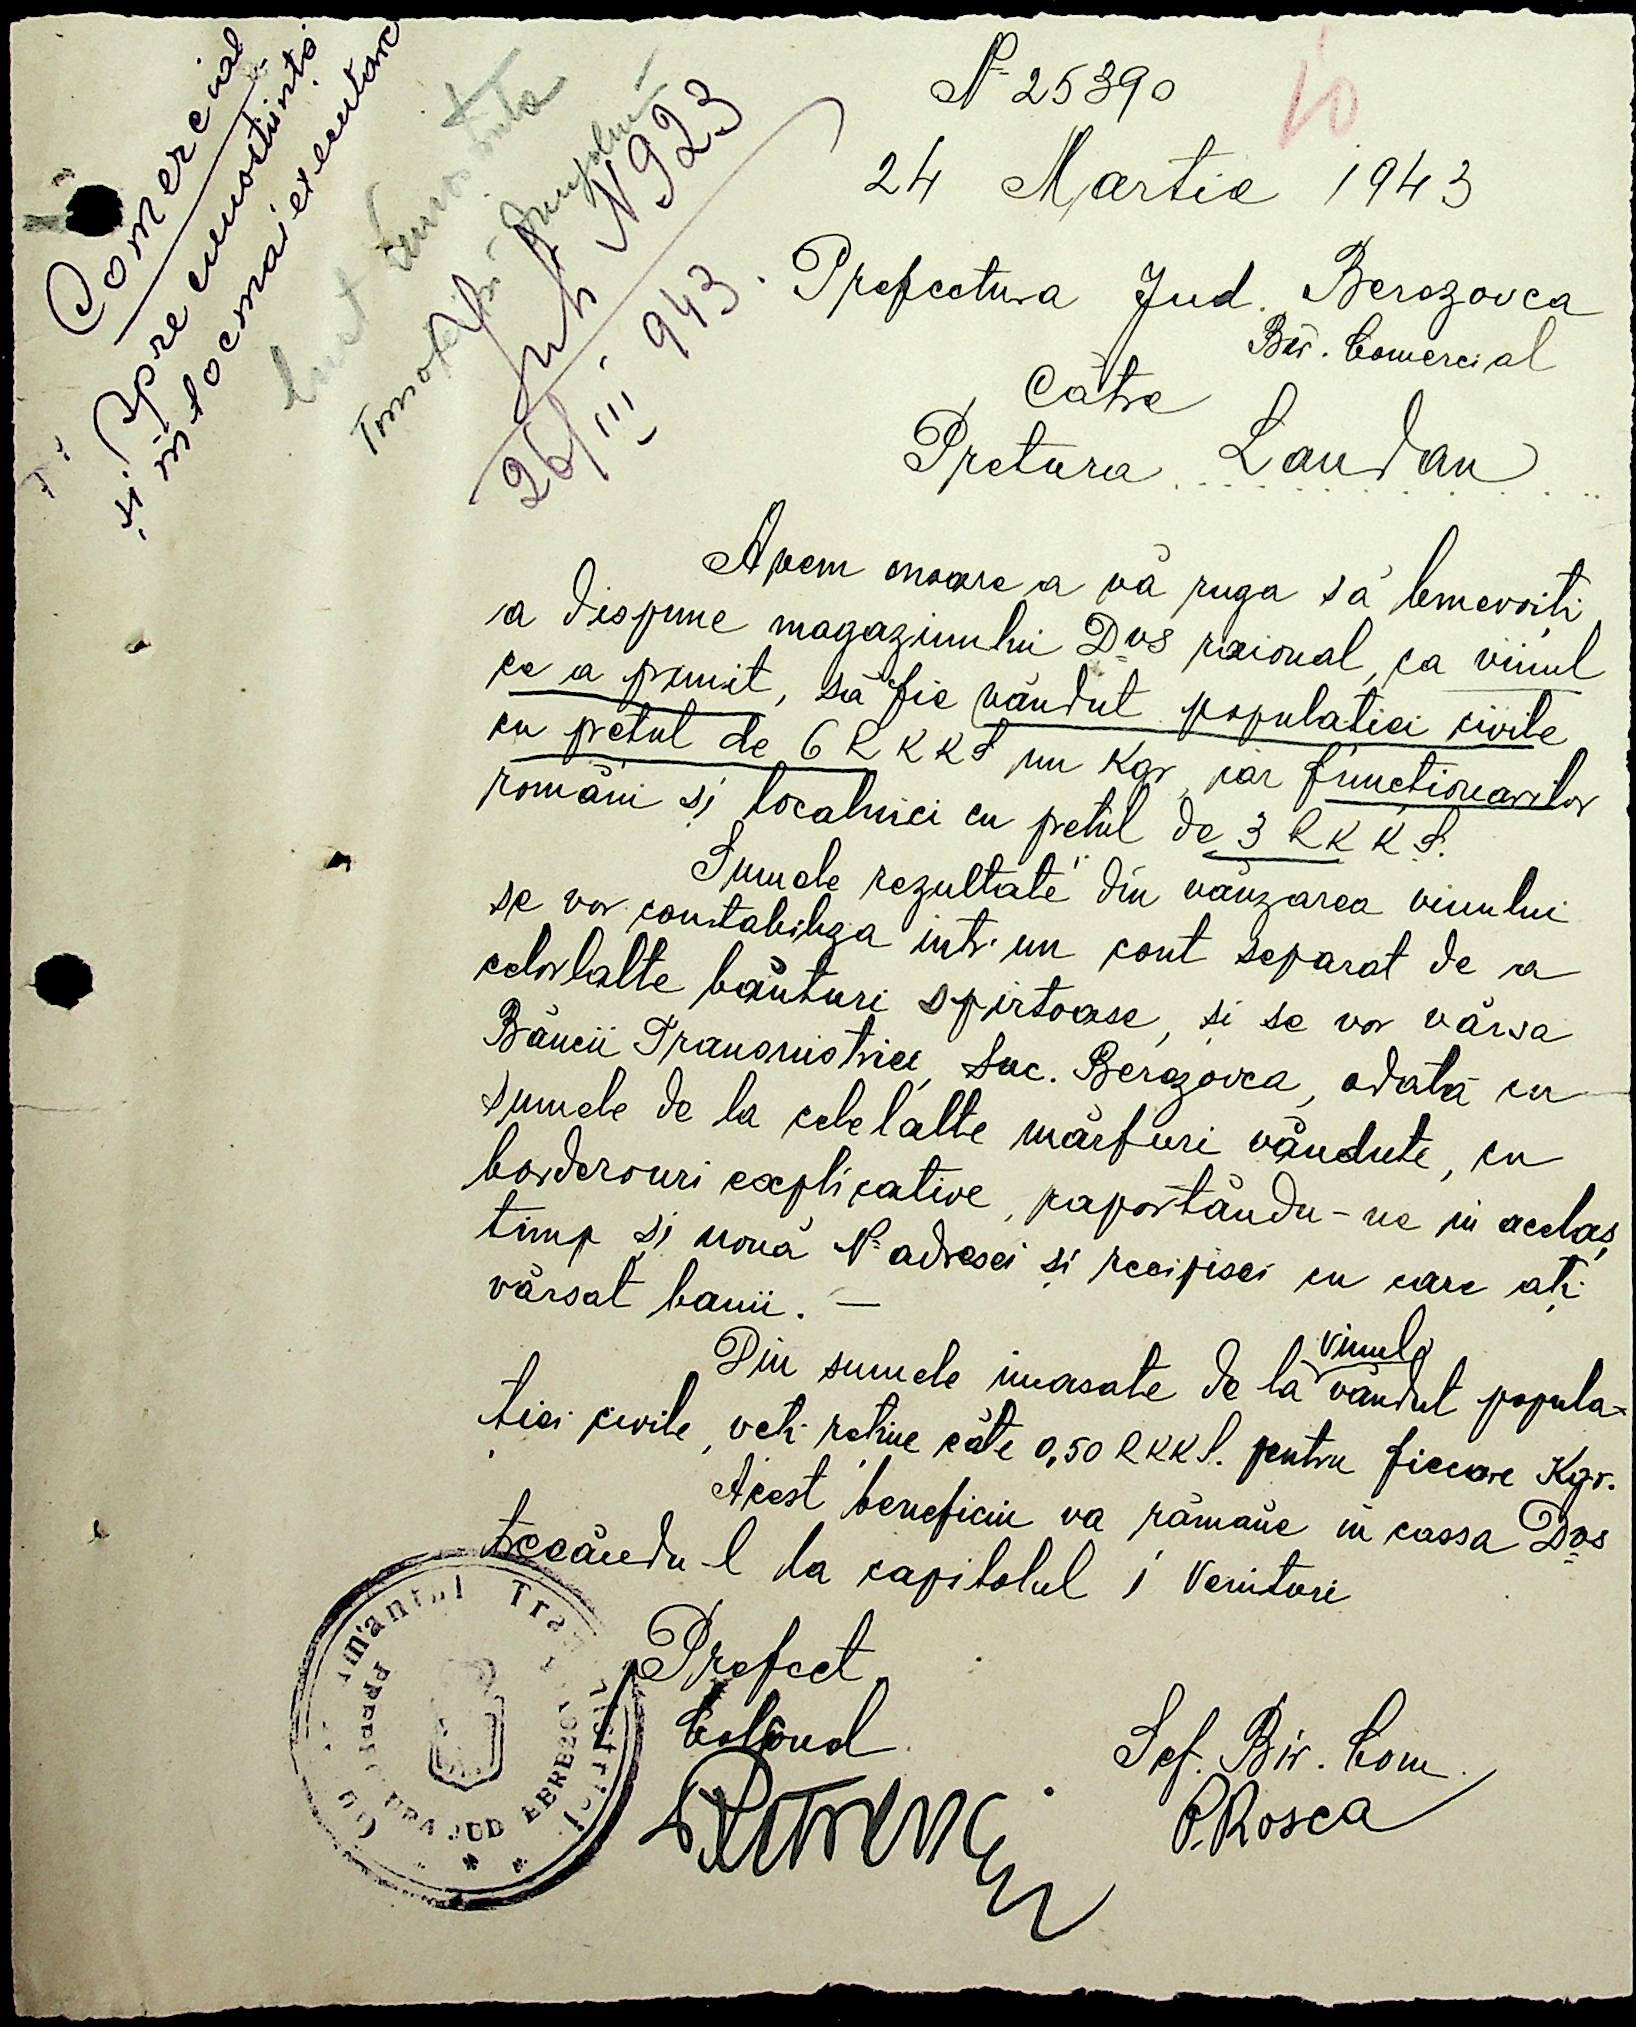 Comercial
Spre cunostiinta
și intocmai executare
Luat cunostinta
Inreg. sub N 923
26/III 943.
10
Nº 25390
24 Martie 1943
Prefectura Jud. Berezovca
Bir. Comercial
Cãtre
Pretura Landau
Avem onoare a vã ruga sã benevoiți
a dispune magazinului Dvs raional, ca vinul
ce a primit, sã fie vândut populatiei civile
cu pretul de 6 RKKS un Kgr, iar functionarilor
români și localnici cu pretul de 3 RKKS.
Sumele rezultate din vânzarea vinului
se vor contabiliza intr-un cont separat de a
celorlalte bãuturi spirtoase, și se vor vãrsa
Bãncii Transnistriei, Suc. Berezovca, odatã cu
sumele de la celelalte mãrfuri vândute, cu
borderouri explicative, raportându-ne in acelaș
timp și nouã Nº adresei și recipisei cu care ați
vãrsat banii. —
Din sumele incasate de la vinul vândut popula-
ției civile, veți reține câte 0,50 RKKS. pentru fiecare Kgr.
Acest beneficiu va rãmâne in cassa Dvs
trecându-l la capitolul 1 Venituri
Prefect
Colonel
Sef. Bir. Com.
P. Rosca